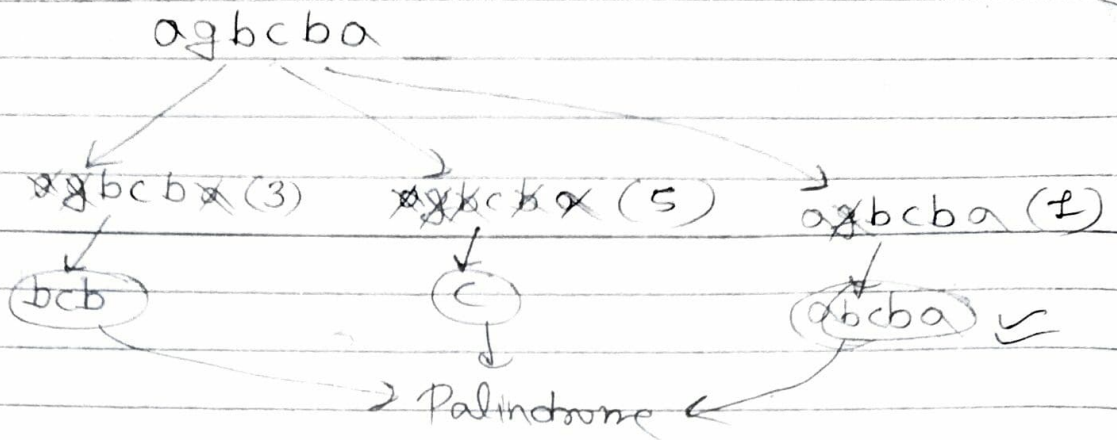 agbcba
agbcba (3) agbcba (5) agbcba (1)
bcb c abcba
Palindrome